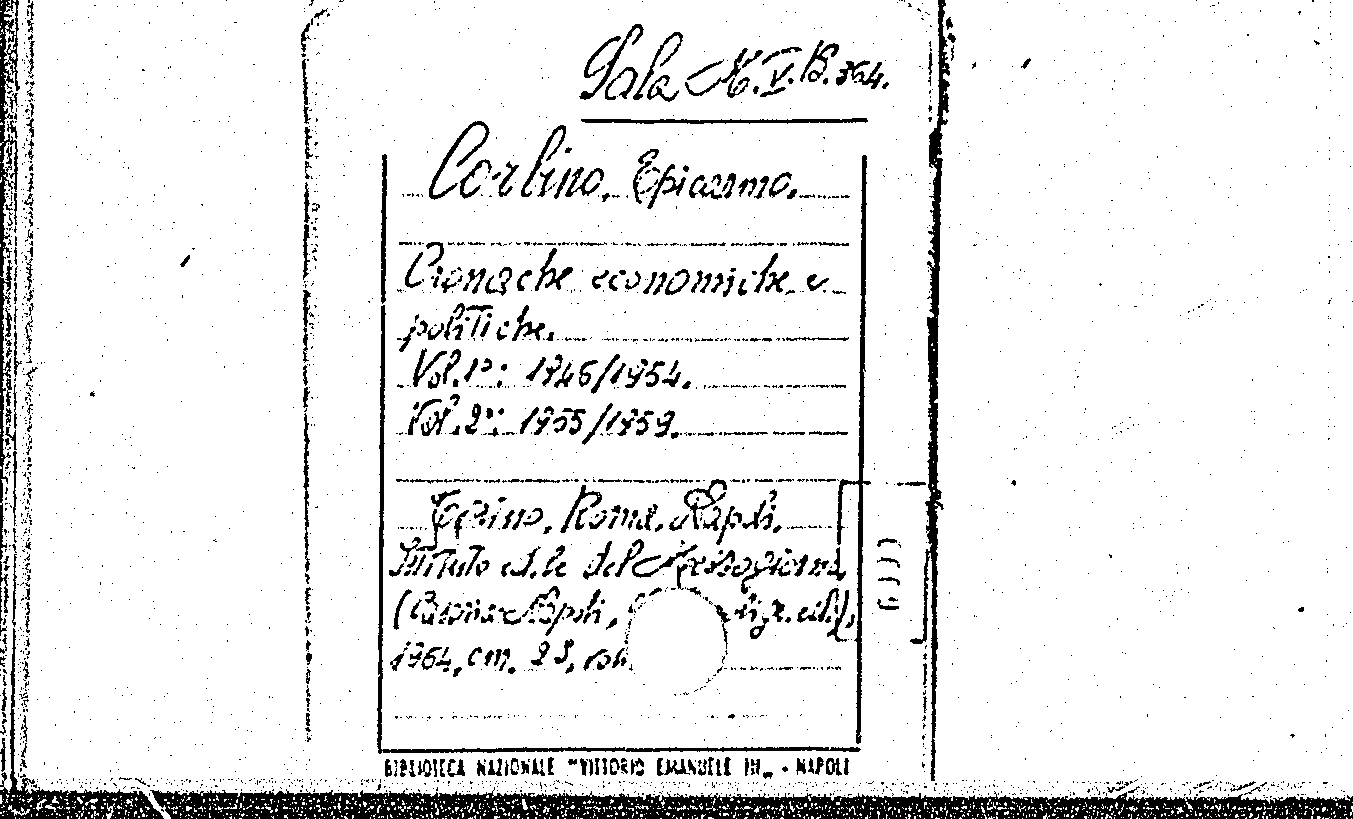 Sala M.V.B.364.
Corbino, Epicarmo.
Cronache economiche e
politiche.
Vol.1º: 1946/1954.
Vol.2º: 1955/1959.
Torino, Roma, Napoli.
Istituto ed.le del Mezzogiorno
Napoli,
1964, cm. 23,
BIBLIOTECA NAZIONALE "VITTORIO EMANUELE III„ - NAPOLI